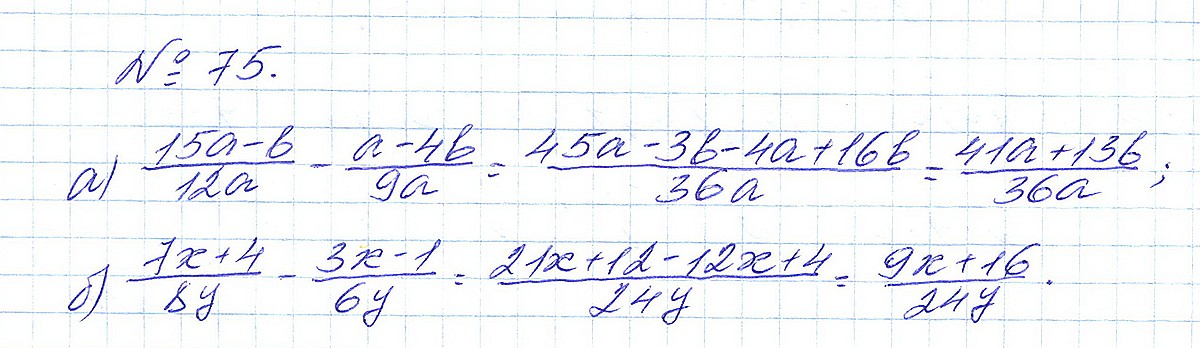 № 75.
а) (15a-b)/(12a) - (a-4b)/(9a) = (45a-3b-4a+16b)/(36a) = (41a+13b)/(36a);
б) (7x+4)/(8y) - (3x-1)/(6y) = (21x+12-12x+4)/(24y) = (9x+16)/(24y).